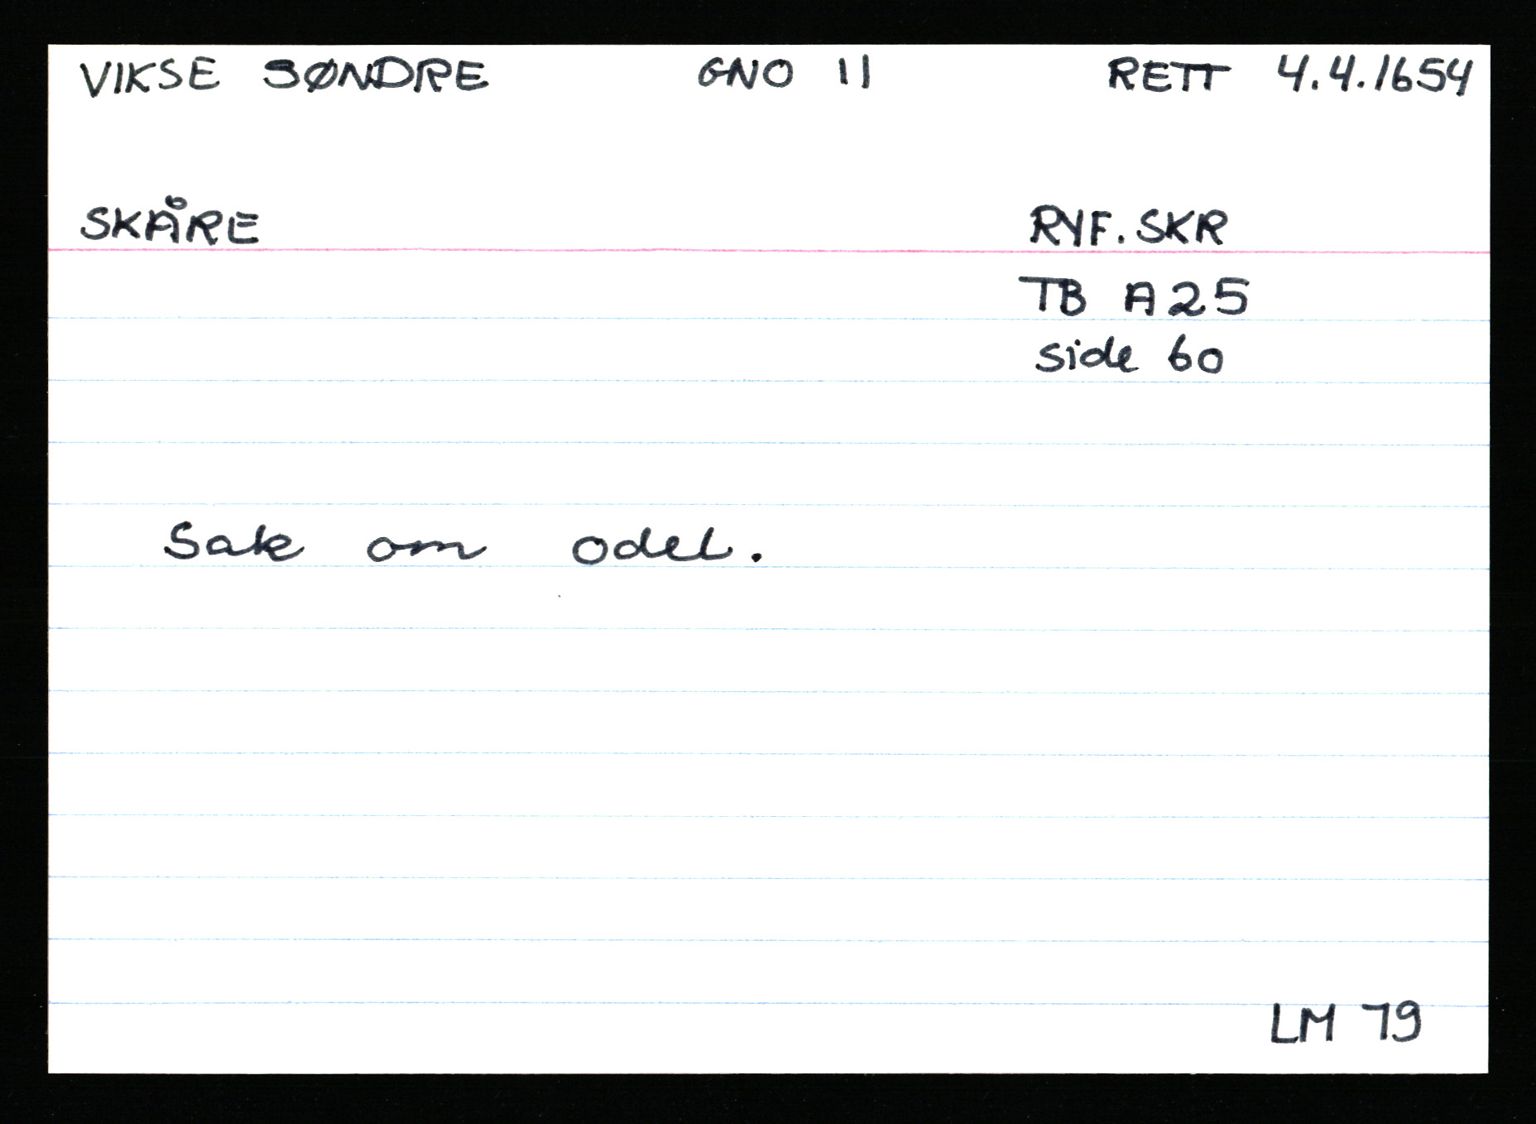 VIKSE SØNDRE GNO 11 RETT 4.4.1654
SKÅRE RYF. SKR
TB A25
side 60
Sak om odel.
LM 79